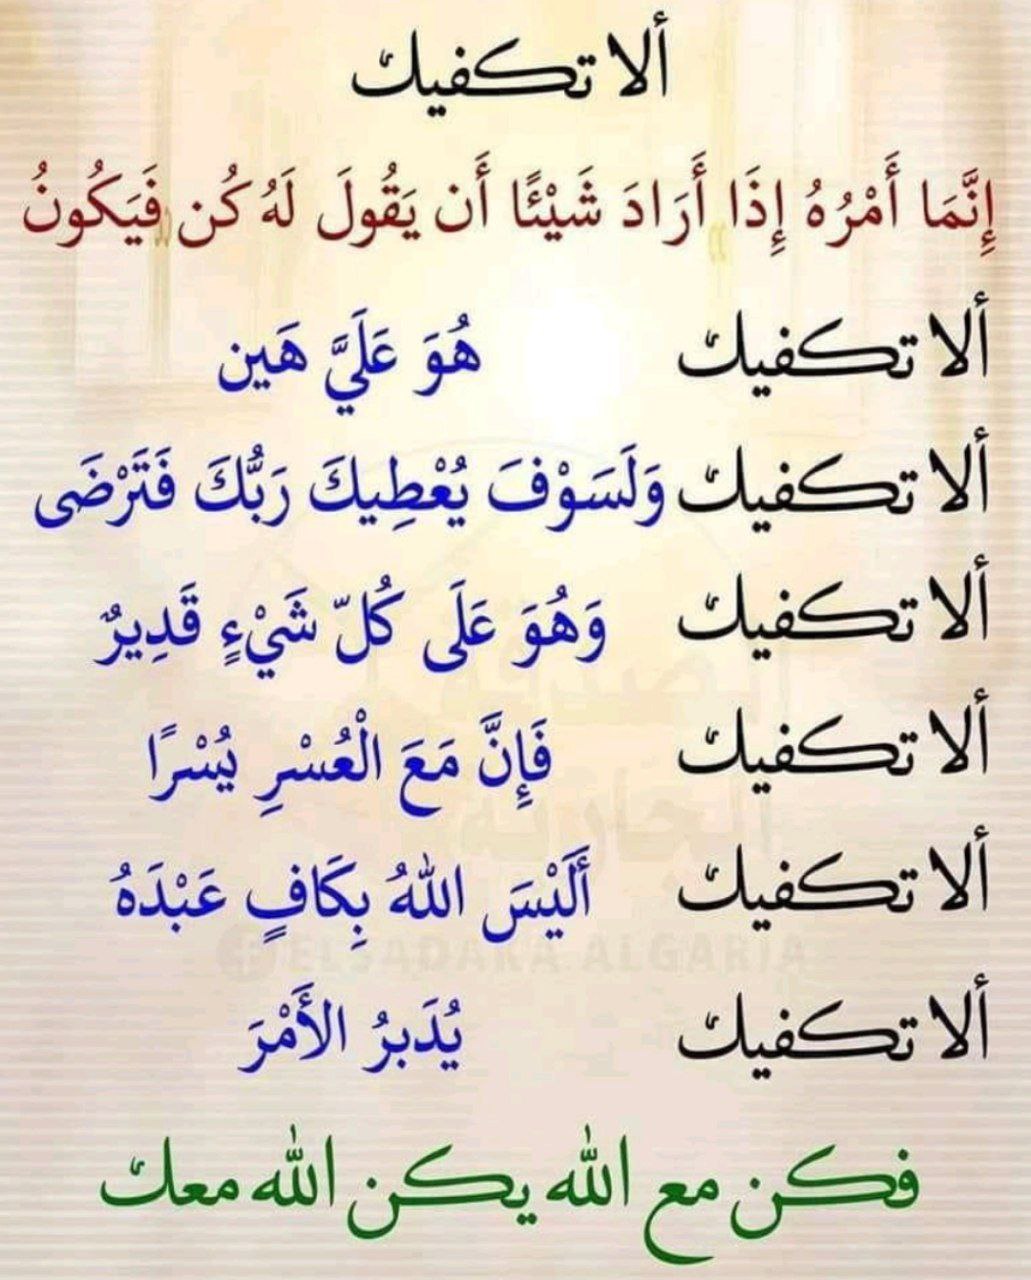 ألا تكفيك
إِنَّمَا أَمْرُهُ إِذَا أَرَادَ شَيْئًا أَن يَقُولَ لَهُ كُن فَيَكُونُ
ألا تكفيك هُوَ عَلَيَّ هَين
ألا تكفيك وَلَسَوْفَ يُعْطِيكَ رَبُّكَ فَتَرْضَى
ألا تكفيك وَهُوَ عَلَى كُلّ شَيْءٍ قَدِيرٌ
ألا تكفيك فَإِنَّ مَعَ الْعُسْرِ يُسْرًا
ألا تكفيك أَلَيْسَ اللهُ بِكَافٍ عَبْدَهُ
ELSADAKA.ALGARIA
ألا تكفيك يُدَبرُ الأَمْرَ
فكن مع الله يكن الله معك